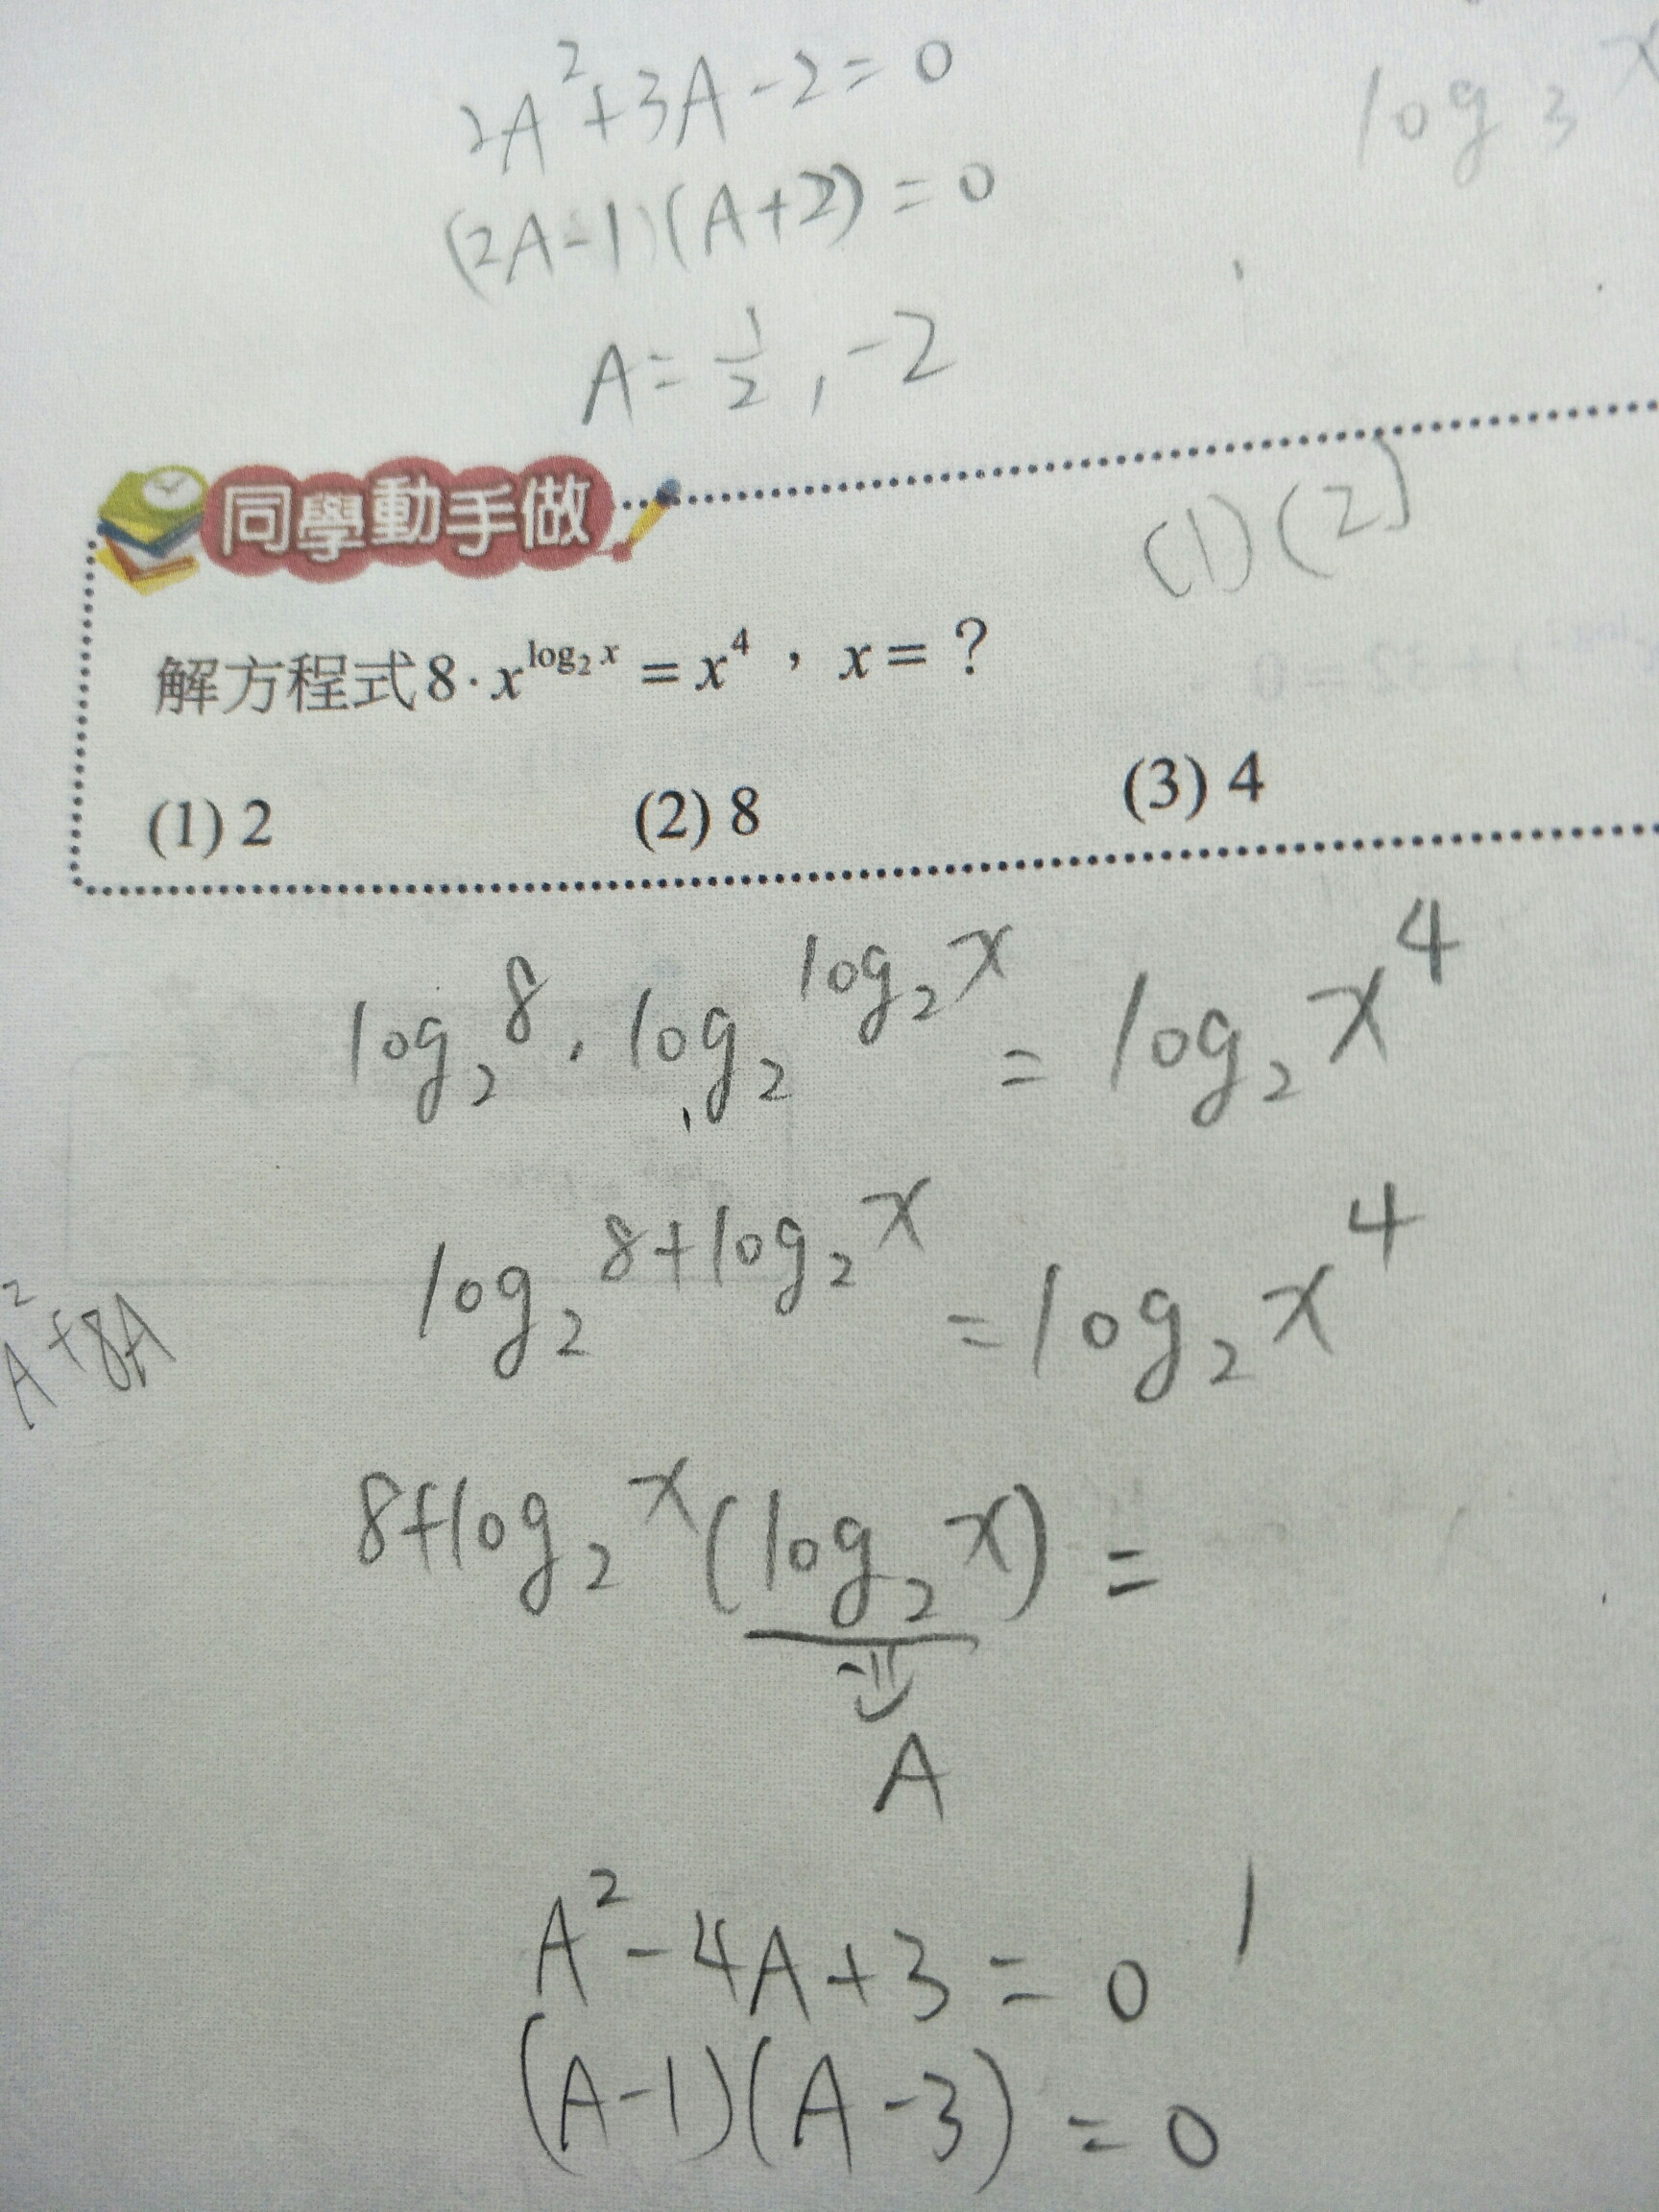 2A²+3A-2=0
log₃ x
(2A-1)(A+2)=0
A=1/2, -2
同學動手做
(1)(2)
解方程式8·x^(log₂x)=x⁴，x=？
(1) 2 (2) 8 (3) 4
log₂ 8 · log₂ log₂ x = log₂ x⁴
log₂ 8+log₂ x = log₂ x⁴
A²+8A
8+log₂ x (log₂ x) =
A
A²-4A+3=0
(A-1)(A-3)=0